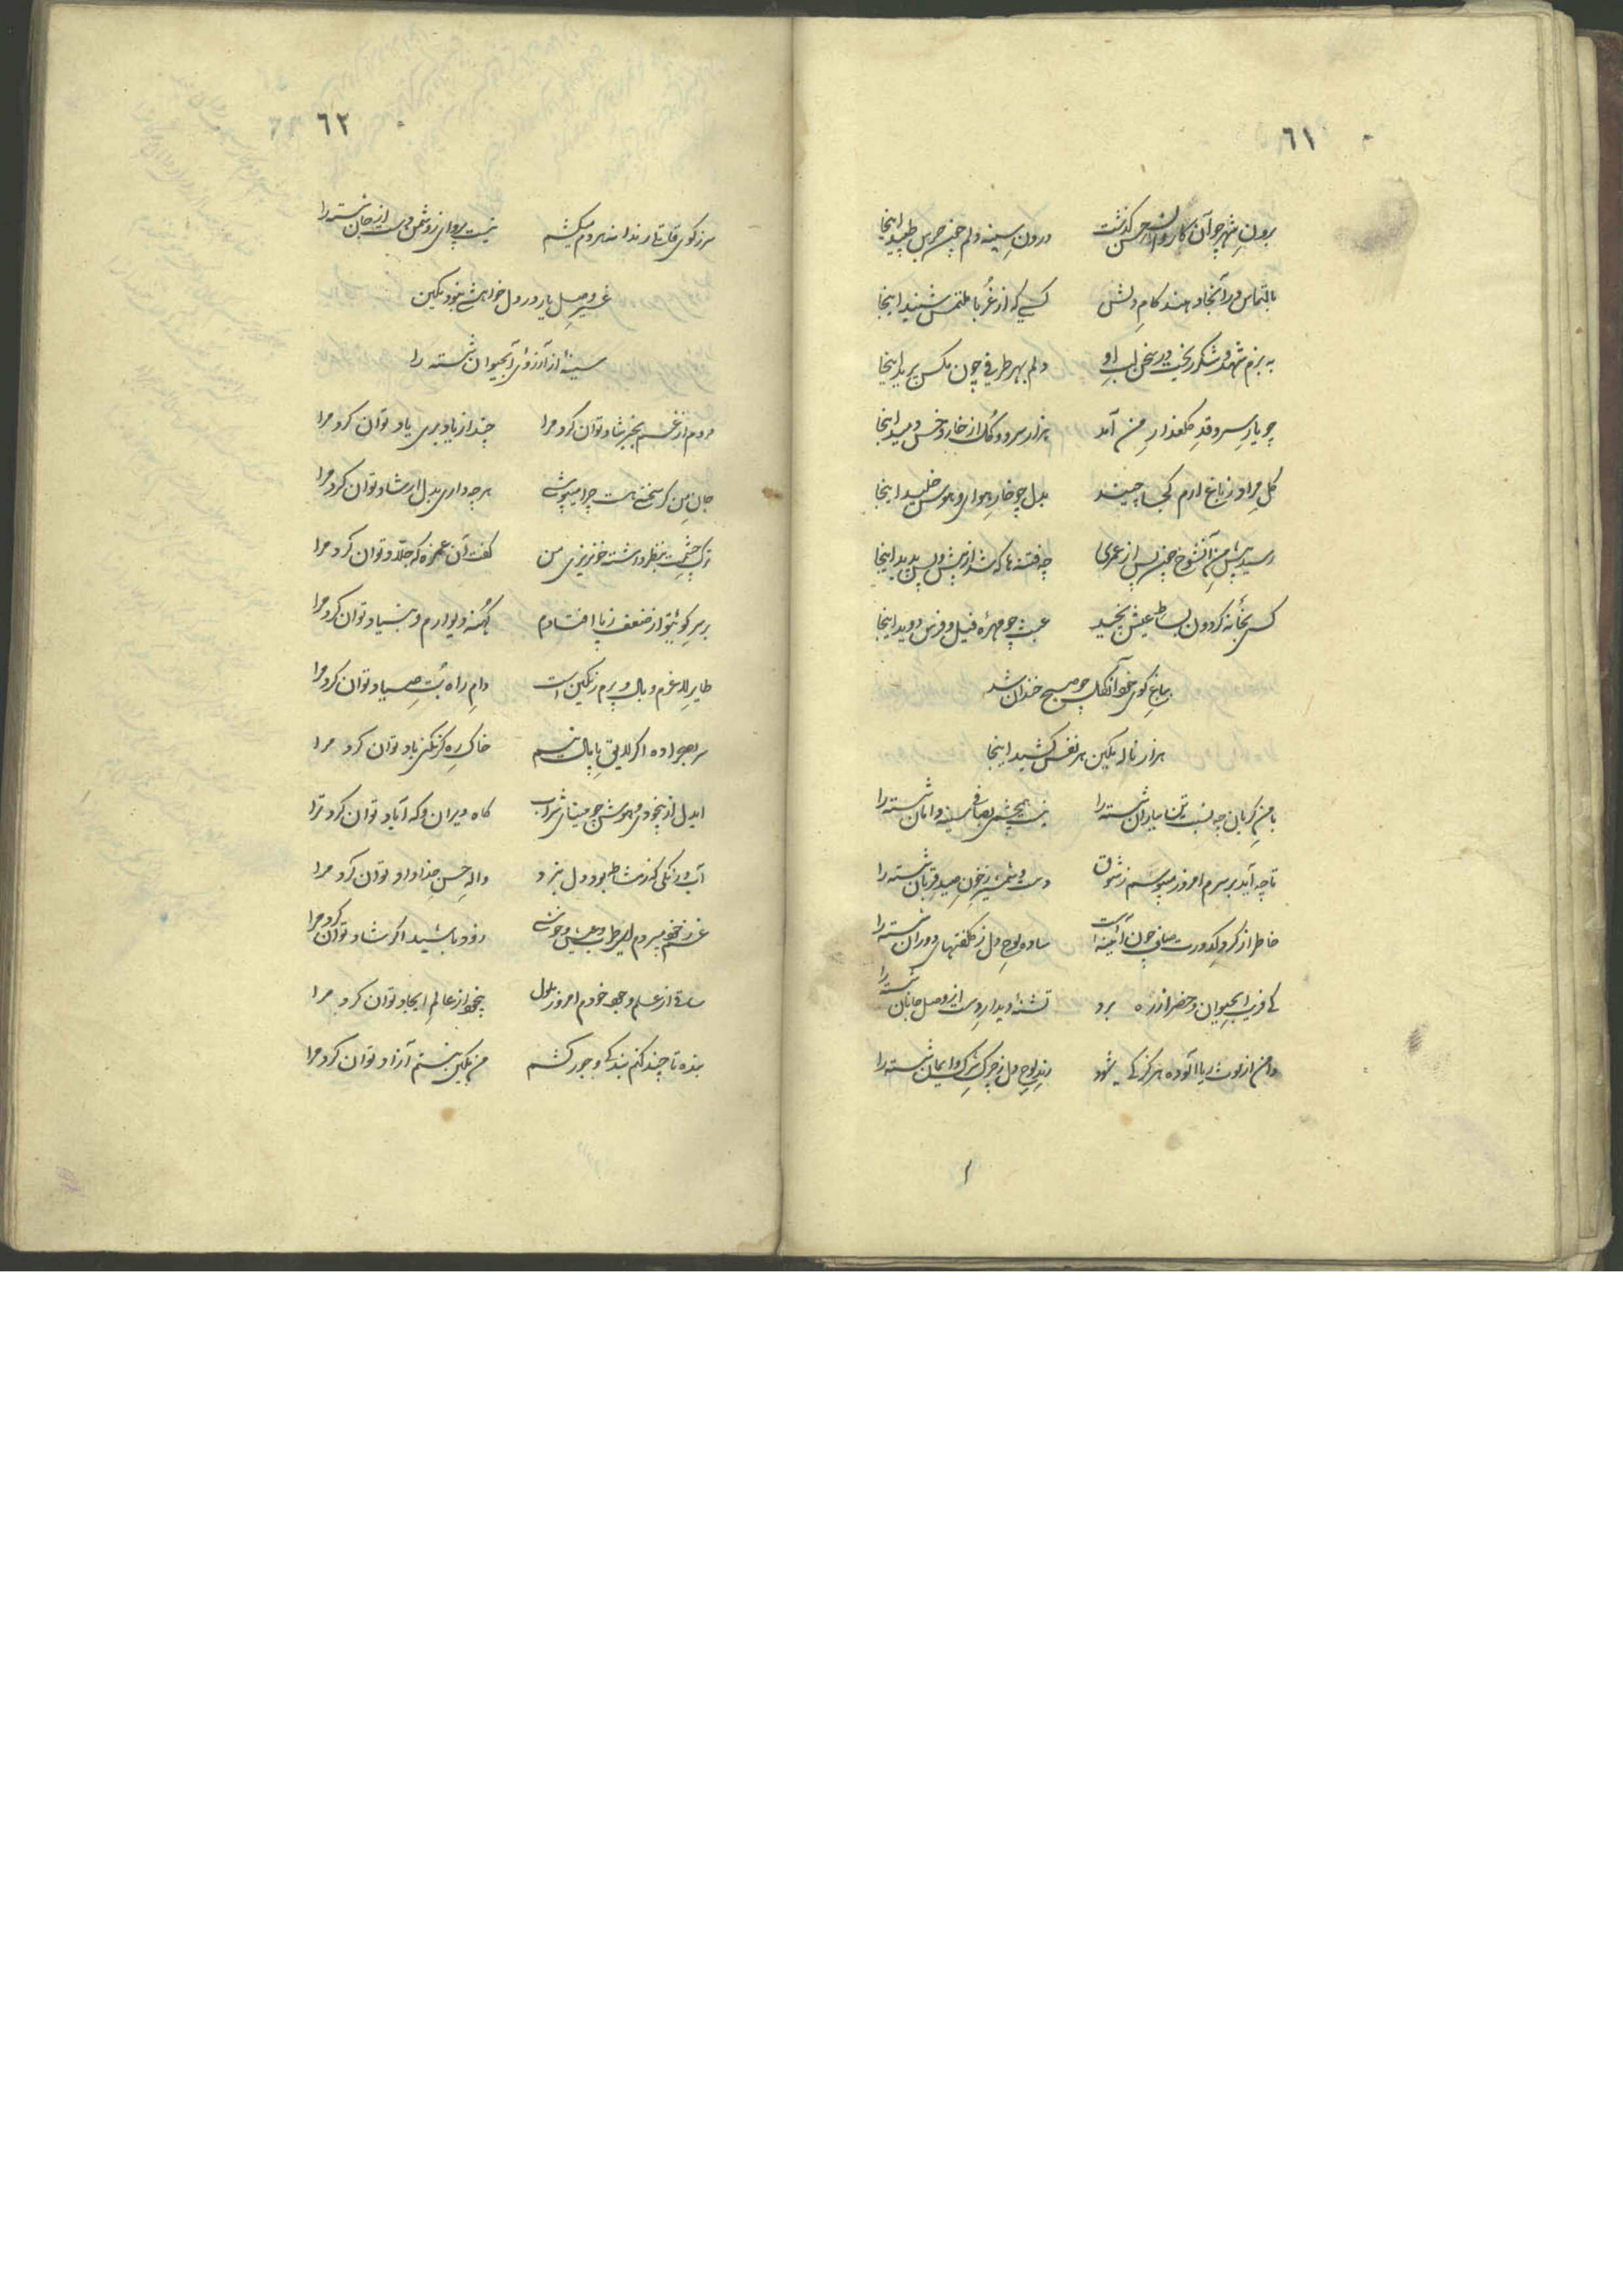 ٦١
برون شهر چو آن کاروان حسن گذشت درون سینه دلم چون جرس طپید اینجا
بالتماس در آنجا دهند کام دلش کسی که از غربا ملتمس شنید اینجا
به بزم شهد و شکر ریخت در سخن لب او دلم بهر طرفی چون مگس پرید اینجا
چو یار سرو قد گلعذار من آمد هزار سرو و گل از خار و خس دمید اینجا
گل مراد ز باغ ارم کجا چیند بدل چو خار هوا و هوس خلید اینجا
رسید پیش من آنشوخ چون پس از عمری چه فتنه ها که شد از پیش و پس پدید اینجا
کسی بخانه گردون بساط عیش نچید عبث چو مهره فیل و فرس دوید اینجا
بباغ کوی خود آنگل چو صبح خندان شد
هزار ناله نگین هر نفس کشید اینجا
با من گریان چه نسبت باران شسته را نیست همچشمی بصافی سینه دامان شسته را
تا چه آید بر سرم امروز میپرسم ز شوق دست و شمشیر ز خون صید قربان شسته را
خاطر از گرد کدورت صاف چون آئینه است ساده لوح دل ز کلفتهای دوران شسته را
کی فریب آبحیوان و خضر از ره برد تشنه دیدار دست از وصل جانان شسته را
دامن از لوث ریا آلوده هرگز کی شود رند لوح دل ز چرک شرک و ایمان شسته را
٦٢
سر ز کوی قاتل رندانه مردم میکشم نیست پروای ز دشمن دست از جان شسته را
غیر وصل یار در دل خواهشی نبود نگین
سینه از آرزوی آبحیوان شسته را
مردم از غم بخبر شاد توان کرد مرا چند از یاد بری یاد توان کرد مرا
جان من گر سخنی هست چرا میپوشی هر چه داری بدل ارشاد توان کرد مرا
ترک چشمت بنظر داشت خونریزی من گفت آن غمزه که جلاد توان کرد مرا
بر سر کوی تو از ضعف ز پا افتادم کهنه دیوارم و بنیاد توان کرد مرا
طایر لاغرم و بال و پرم رنگین است دام راه بت صیاد توان کرد مرا
سر بصحرا ده اگر لایق پامال نیم خاک ره گر نکنی باد توان کرد مرا
ایدل از بیخودی مهوش چو مینای شراب گاه ویران و گه آباد توان کرد ترا
آب و رنگی که ز مشاطه بود دل نبرد واله حسن خداداد توان کرد مرا
غم ز خود میبردم ای طرب و عیش و خوشی زود باشید اگر شاد توان کرد مرا
ساقی از علم وجود خودم امروز ملول بیخود از عالم ایجاد توان کرد مرا
بنده تا چند کنم بندگی و جور کشم من نگین نیستم آزاد توان کرد مرا